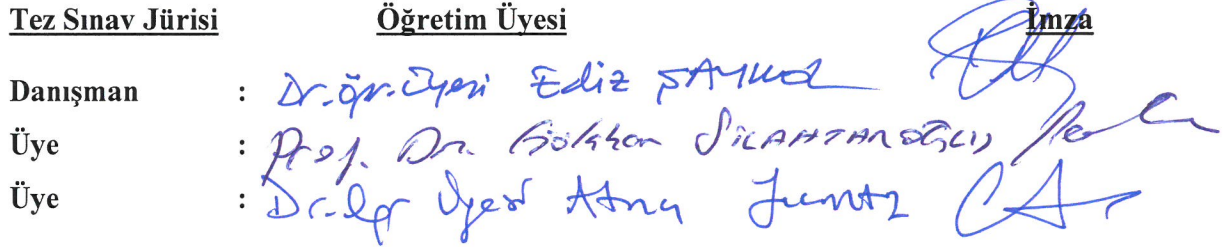 Tez Sınav Jürisi Öğretim Üyesi İmza
Danışman : Dr. Öğr. Üyesi Ediz ŞAYKOL
Üye : Prof. Dr. Gökhan SİLAHTAROĞLU
Üye : Dr. Öğr Üyesi